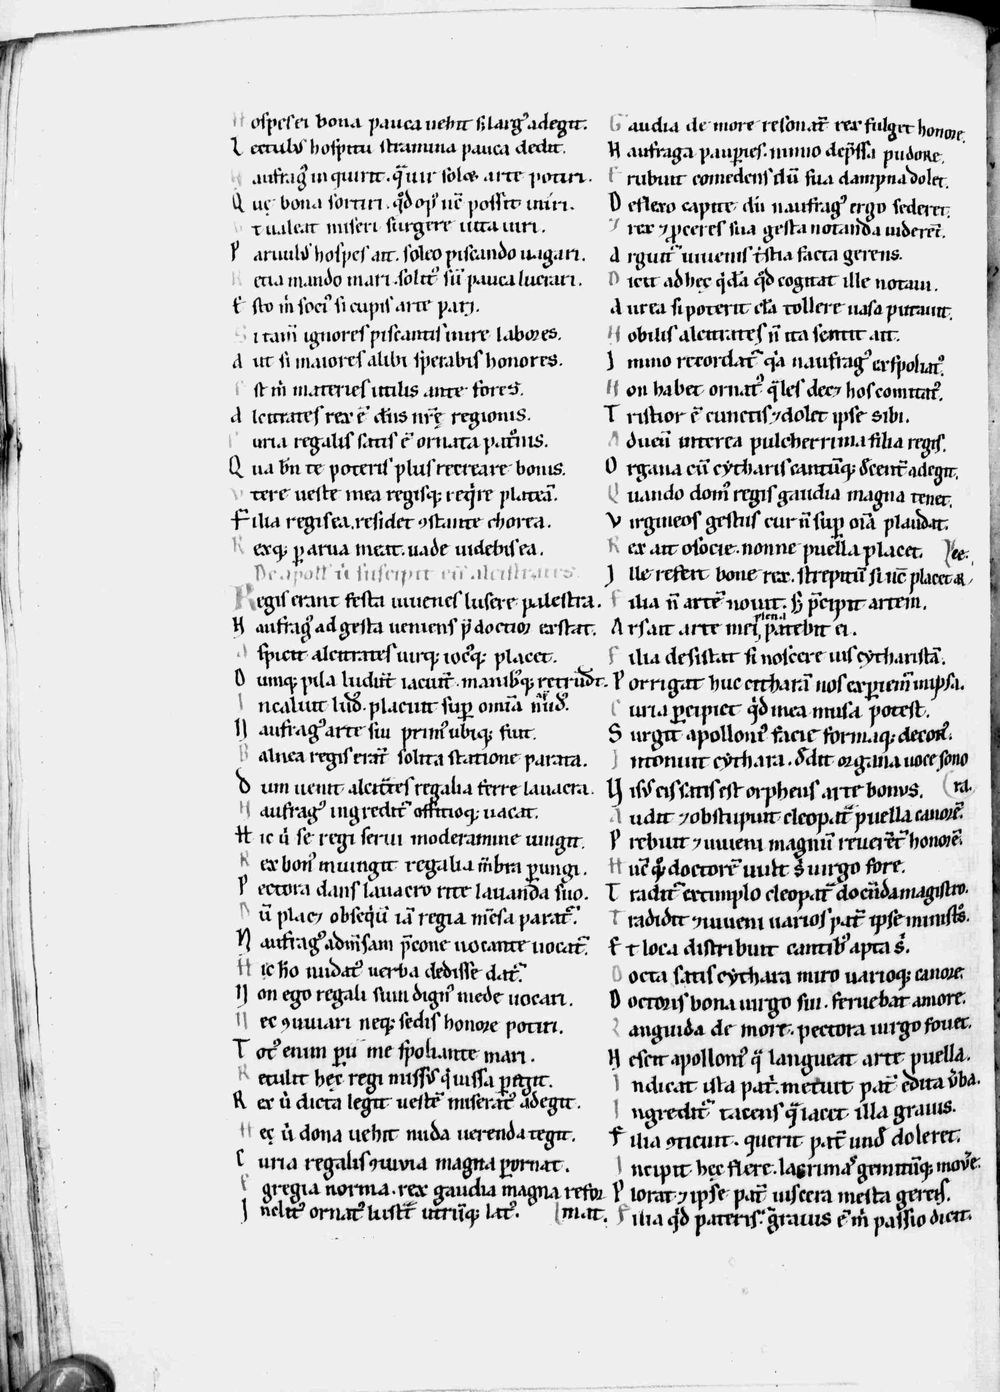 Hospes ei bona pauca uehit s; largꝰ adegit.
Lectulus hospitii stramina pauca dedit.
Naufragꝰ inquirit. q̃ uir soleat arte potiri.
Quę bona sortiri. qd̾ opꝰ uel̃ possit iniri.
Vt ualeat miseri surgere uita uiri.
Paruulus hospes ait. soleo piscando uagari.
Retia mando mari. solitꝰ sum pauca lucrari.
Esto m̃ sociꝰ si cupis arte pari.
Si tam̃ ignores piscantis inire labores.
Aut si maiores alibi sperabis honores.
Est m̃ materies utilis ante fores.
Alcitrates rex ẽ dñs nr̃ę regionis.
Curia regalis satis ẽ ornata patronis.
Qua bñ te poteris plus recreare bonis.
Vtere ueste mea regisq; require plateã.
Filia regis ea. residet ꝯstante chorea.
Rexq; p̱ arua meat. uade uidebis ea.
De apoll̃ ũ suscipit eũ alcistrates.
Regis erant festa iuuenes lusere palestra.
Naufragꝰ ad gesta ueniens p̃doctior exstat.
Aspicit alcitrates uirq; iocꝰq; placet.
Dumq; pila ludunt iacitur̃. manibꝰq; retrudit̃.
Incaluit ludꝰ. placuit super omnia nudꝰ.
Naufragꝰ arte sui primꝰ ubiq; fuit.
Balnea regis erant solita statione parata.
Dum uenit alcitrates regalia ferre lauacra.
Naufragꝰ ingreditꝰ officioq; uacat.
Hic ũ se regi serui moderamine iungit.
Rex bonꝰ inungit regalia mẽbra perungi.
Pectora dans lauacro rite lauanda suo.
Dũ placꝫ obsequiũ iã regia mensa paratꝰ.
Naufragꝰ ad mensam p̃cone uocante uocatꝰ.
Hic ho nudatꝰ uerba dedisse datꝰ.
Non ego regali sum dignꝰ inede uocari.
Nec ꝯuiuari neq; sedis honore potiri.
Totꝰ enim perii me spoliante mari.
Retulit hęc regi missus quissa peregit.
Rex ũ dicta legit uestẽ miseratꝰ adegit.
Hęc ũ dona uehit nuda uerenda tegit.
Curia regalis ꝯuiuia magna perornat.
Egregia norma. rex gaudia magna refor
Inclitꝰ ornatꝰ lustrat utrũq; latꝰ. mat.
Gaudia de more resonant̃ rex fulget honore.
Naufraga pauperies. nimio dep̃ssa pudore.
Erubuit comedens dũ sua dampna dolet.
Deflexo capite dũ naufragꝰ ergo sederet.
⁊ rex ⁊ proceres sua gesta notanda uideret̃.
Arguitꝰ iuuenis tristia facta gerens.
Dicit ad hęc quidã qd̾ cogitat ille notaui.
Aurea si poterit clã tollere uasa putauit.
Nobilis alcitrates ñ ita sentit ait.
Immo recordatꝰ quia naufragꝰ exspoliatꝰ.
Non habet ornatꝰ quales decꝫ hos comitatꝰ.
Tristior ẽ cunctis ⁊ dolet ipse sibi.
Aduenit interea pulcherrima filia regis.
Organa cũ cytharis cantumq; docent̃ adegit.
Quando domꝰ regis gaudia magna tenet.
Virgineos gestus cur ñ super oĩa plaudat.
Rex ait o socie. nonne puella placet. ee.
Ille refert bone rex. strepitũ si uel̃ placet a
Filia ñ artẽ nouit. s; p̃cipit artem.
Ars ait arte mei plena patebit ei.
Filia desistat si noscere uis cytharistã.
Porrigat huc citharã nos experiemur in ipsa.
Curia percipiet qd̾ mea musa potest.
Surgit apolloniꝰ facie formaq; decorꝰ.
Intonuit cythara. dedit organa uoce sono
Visus eis satis est orpheus arte bonus. ra.
Audit ⁊ obstupuit cleopatra puella canorẽ.
Prebuit ⁊ iuueni magnũ reuerenter honorẽ.
Hunc qm̃ doctorẽ uult sibi uirgo fore.
Traditꝰ extimplo cleopatra docenda magistro.
Tradidit ⁊ iuueni uarios pat̃ ipse ministros.
Et loca distribuit cantibꝰ apta suis.
Docta satis cythara miro uarioq; canore.
Doctoris bona uirgo sui. feruebat amore.
Languida de more. pectora uirgo fouet.
Nescit apolloniꝰ q̃ langueat arte puella.
Indicat ista patri. metuit pat̃ edita uerba.
Ingreditꝰ tacens qua iacet illa grauis.
Filia ꝯticuit. querit pat̃ unde doleret.
Incipit hęc flere. lacrimas gemitumq; mouere.
Plorat ⁊ ipse pat̃ uiscera mesta gerens.
Filia qd̾ pateris. grauius ẽ m̃ passio dicit.